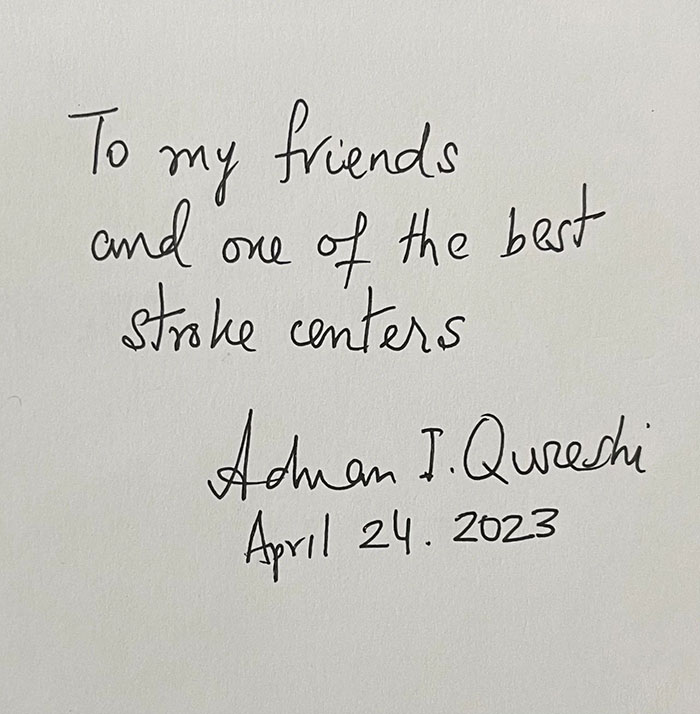 To my friends
and one of the best
stroke centers
Adnan I. Qureshi
April 24. 2023